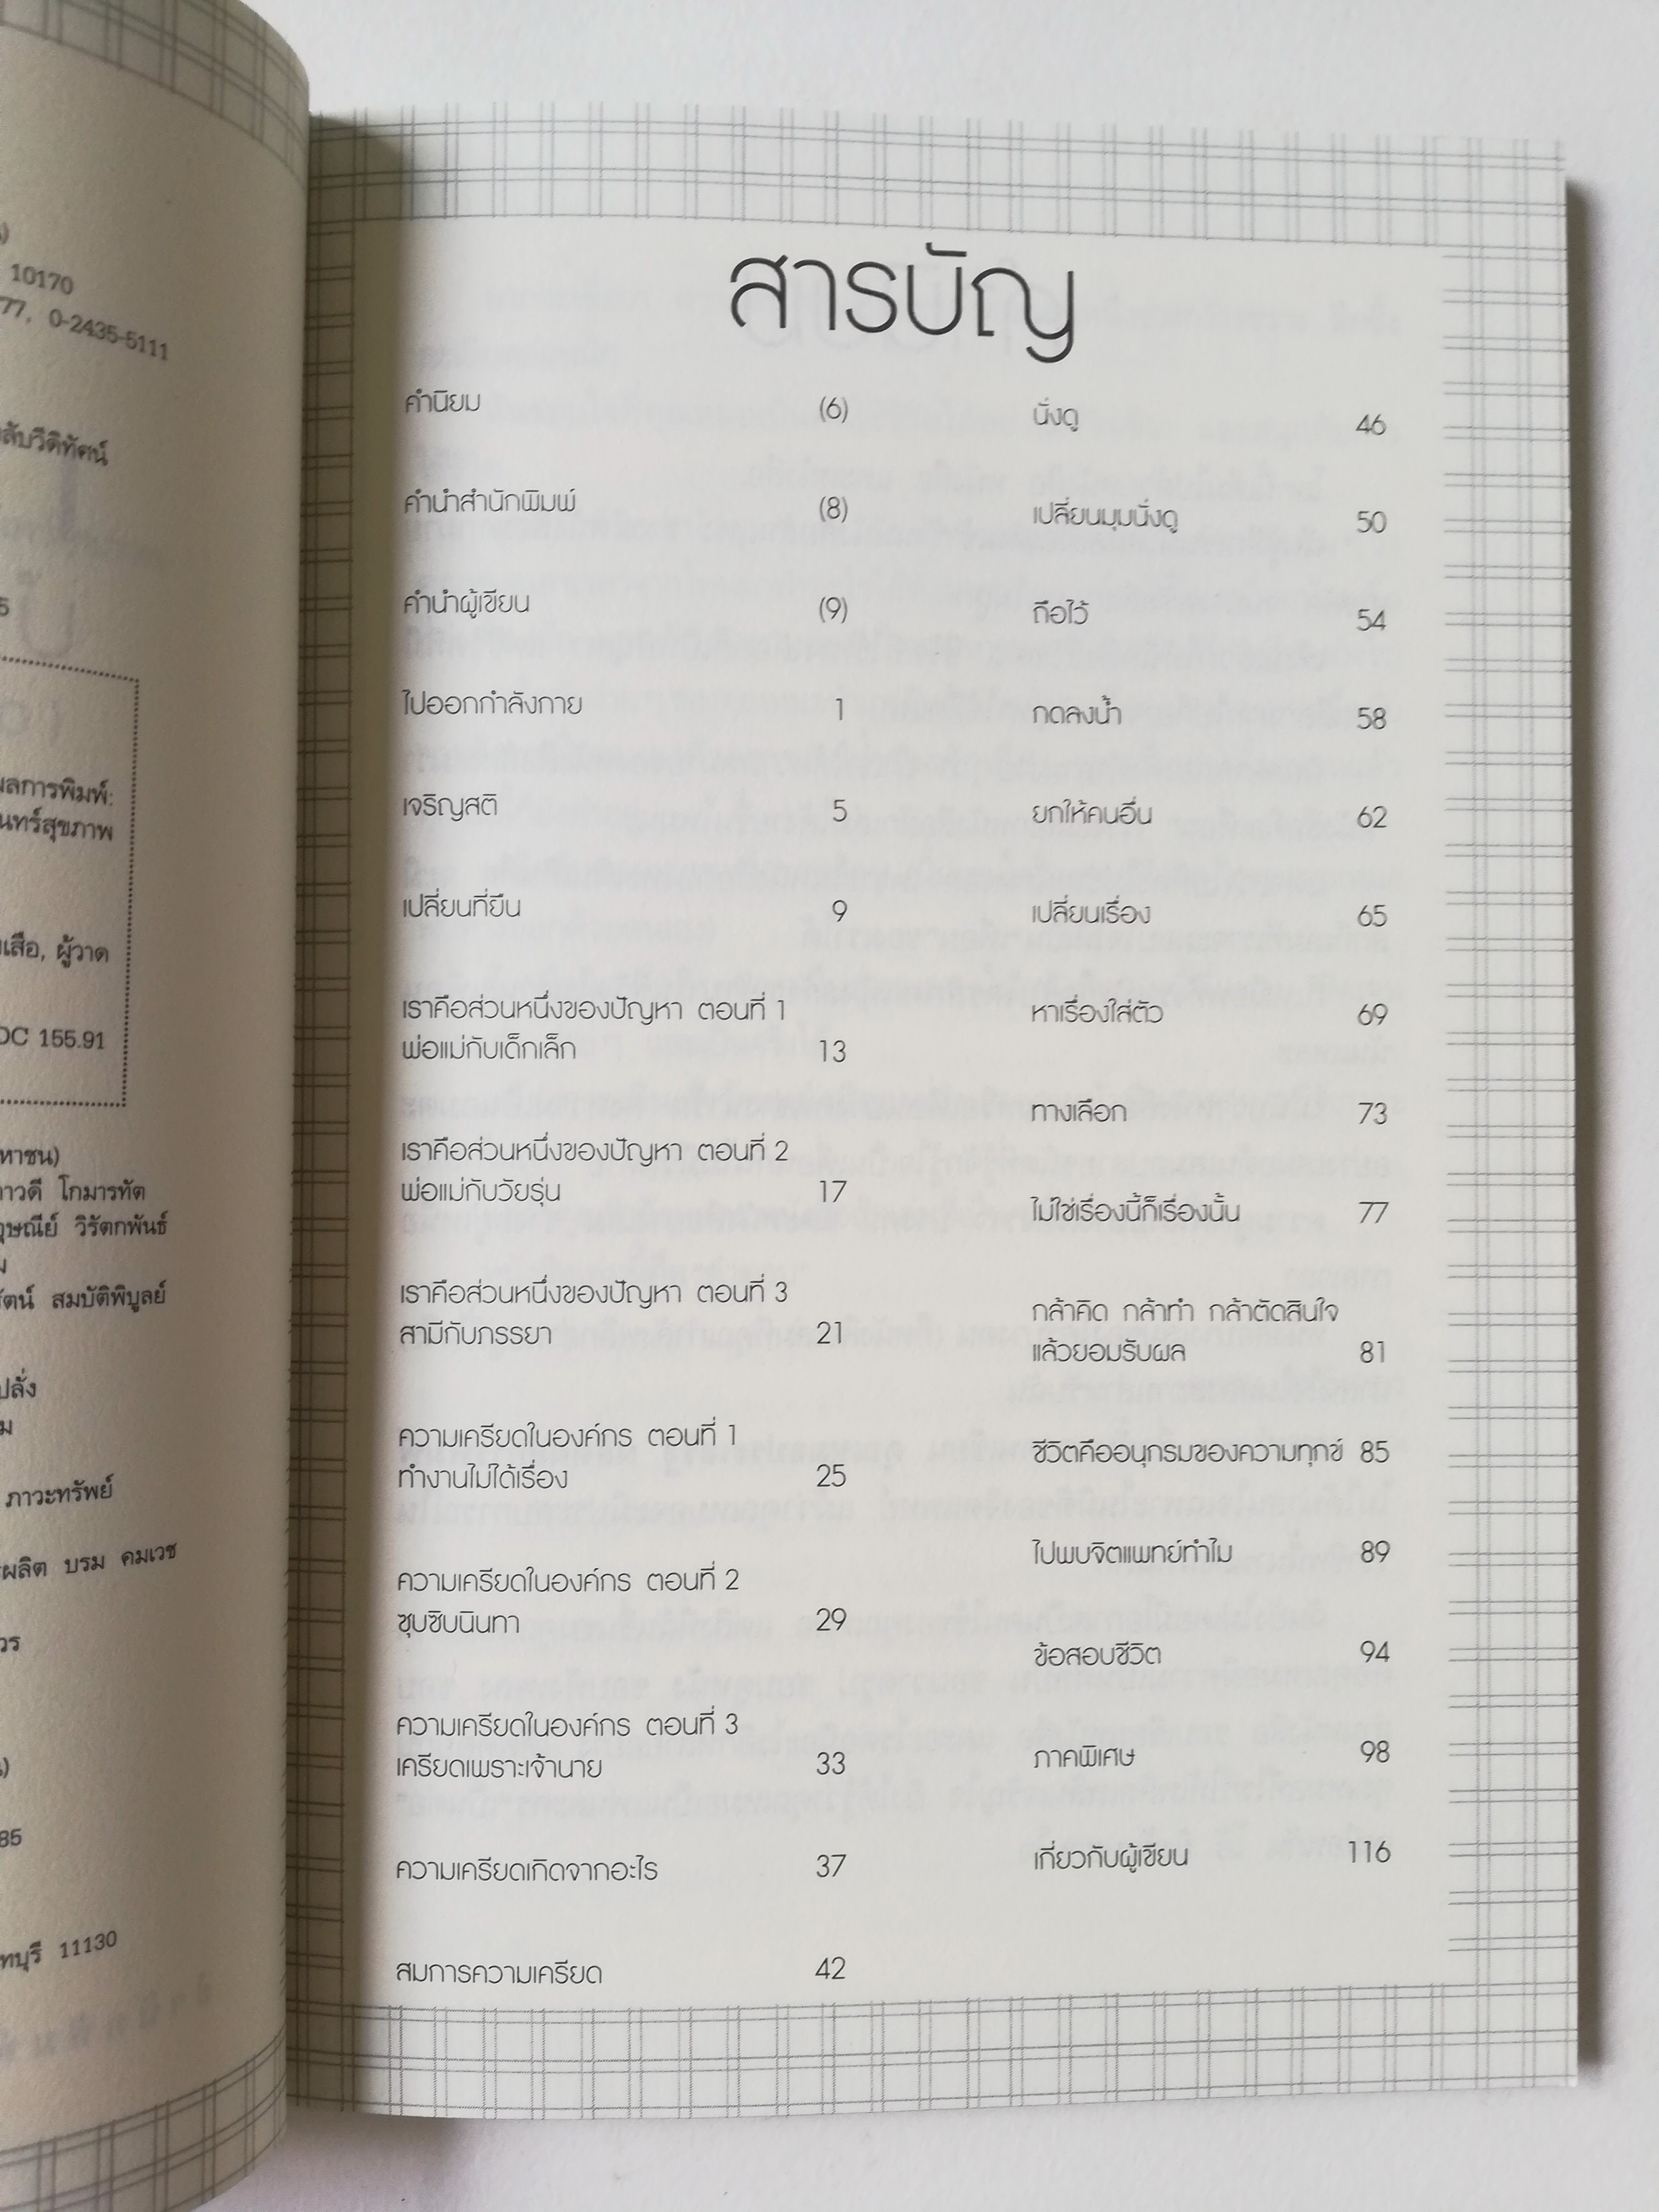 10170
77, 0-2435-5111
155.91
ภาวะทรัพย์
บรม คมเวช
โกมารทัต
วิรัตกพันธ์
สมบัติพิบูลย์
ผู้วาด
85
11130
สารบัญ
คำนิยม (6)
คำนำสำนักพิมพ์ (8)
คำนำผู้เขียน (9)
ไปออกกำลังกาย 1
เจริญสติ 5
เปลี่ยนที่ยืน 9
เราคือส่วนหนึ่งของปัญหา ตอนที่ 1
พ่อแม่กับเด็กเล็ก 13
เราคือส่วนหนึ่งของปัญหา ตอนที่ 2
พ่อแม่กับวัยรุ่น 17
เราคือส่วนหนึ่งของปัญหา ตอนที่ 3
สามีกับภรรยา 21
ความเครียดในองค์กร ตอนที่ 1
ทำงานไม่ได้เรื่อง 25
ความเครียดในองค์กร ตอนที่ 2
ซุบซิบนินทา 29
ความเครียดในองค์กร ตอนที่ 3
เครียดเพราะเจ้านาย 33
ความเครียดเกิดจากอะไร 37
สมการความเครียด 42
นั่งดู 46
เปลี่ยนมุมนั่งดู 50
ถือไว้ 54
กดลงน้ำ 58
ยกให้คนอื่น 62
เปลี่ยนเรื่อง 65
หาเรื่องใส่ตัว 69
ทางเลือก 73
ไม่ใช่เรื่องนี้ก็เรื่องนั้น 77
กล้าคิด กล้าทำ กล้าตัดสินใจ
แล้วยอมรับผล 81
ชีวิตคืออนุกรมของความทุกข์ 85
ไปพบจิตแพทย์ทำไม 89
ข้อสอบชีวิต 94
ภาคพิเศษ 98
เกี่ยวกับผู้เขียน 116